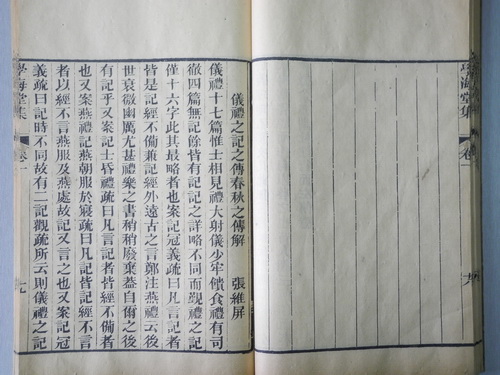 海堂集
卷
儀禮之記之傳春秋之傳解 張維屏
儀禮十七篇惟士相見禮大射儀少牢饋食禮有司
徹四篇無記餘皆有記記之詳略不同而覲禮之記
僅十六字此其最略者也案記冠義疏曰凡言記者
皆是記經不備兼記經外遠古之言鄭注燕禮云後
世衰微幽厲尤甚禮樂之書稍稍廢棄蓋自爾之後
有記乎又案記士昏禮疏曰凡言記者皆經不備者
也又案燕禮記燕朝服於寢疏曰凡記皆記經不言
者以經不言燕服及燕處故記又言之也又案記冠
義疏曰記時不同故有二記觀疏所云則儀禮之記
學海堂集 卷一